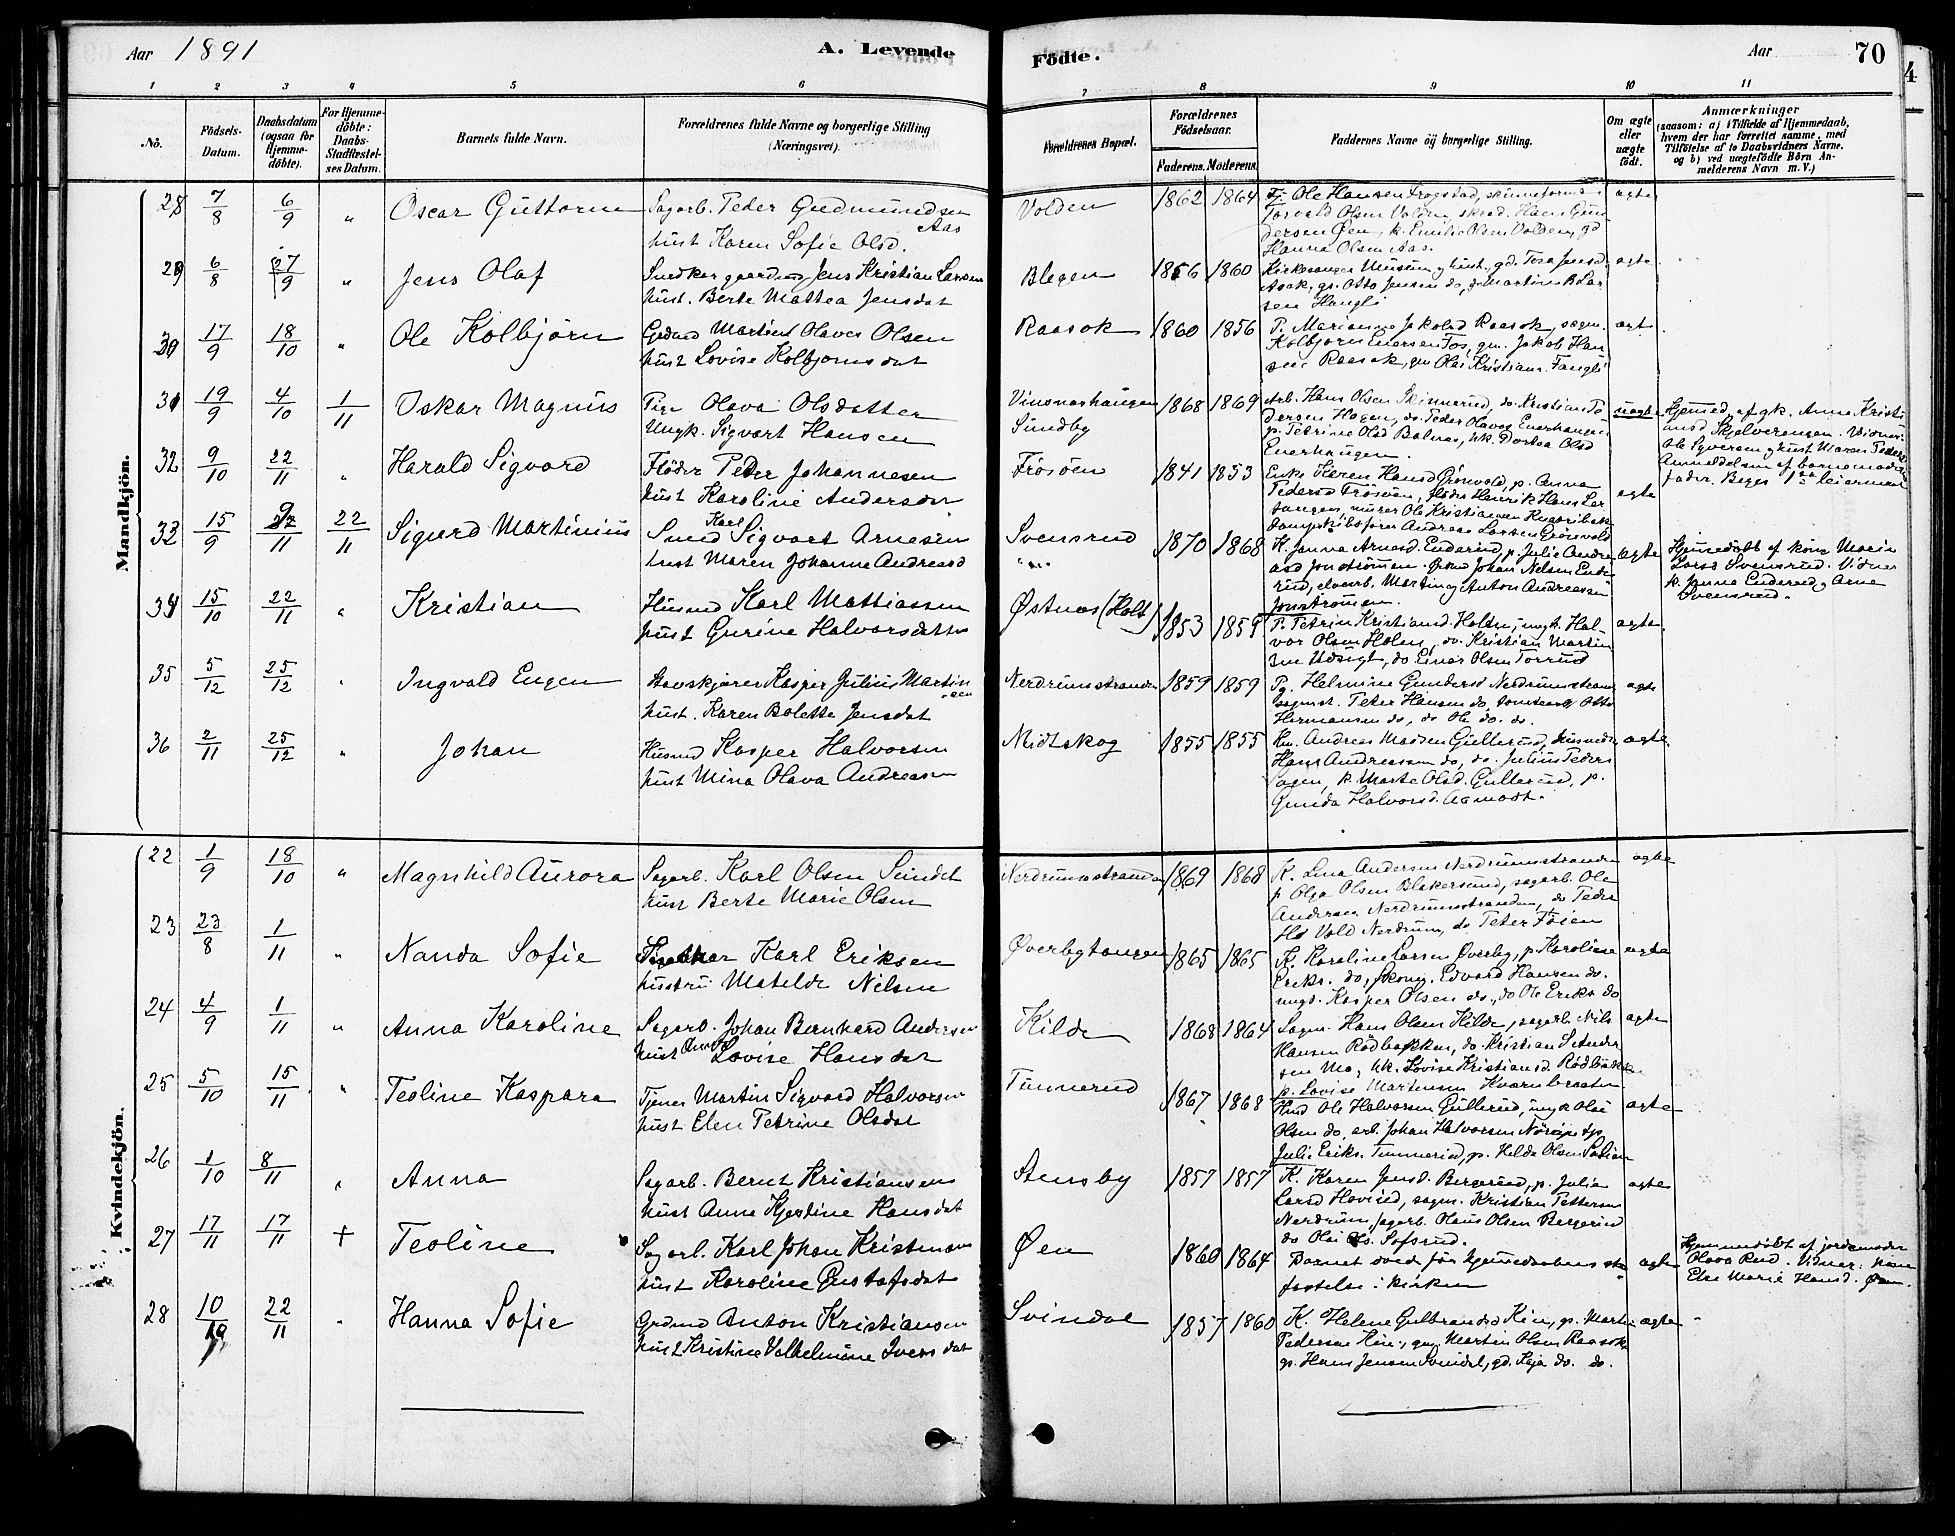 Aar 1891
A. Levende
Födte.
Aar
70
1 2 3 4 5 6 7 8 9 10 11
No.
Födsels-Datum.
Daabsdatum (ogsaa för Hjemme-döbte).
For Hjemme-döbte: Daabs-Stadfæstel-ses Datum.
Barnets fulde Navn.
Forældrenes fulde Navne og borgerlige Stilling (Næringsvei).
Forældrenes Bopæl.
Forældrenes Födselsaar.
Faderens. Moderens.
Faddernes Navne og borgerlige Stilling.
Om ægte eller uægte födt.
Anmærkninger
(saasom: a) i Tilfælde af Hjemmedaab, hvem der har forrettet samme, med Tilföielse af to Daabsvidners Navne. og b) ved uægtefödte Börn An-melderens Navn m. V.)
Mandkjön.
28 7/8 6/9 " Oscar Guttorm
Sagarb. Peder Gudmundsen Aas
hust Karen Sofie Olsd.
Volden 1862 1864
Ole Hansen Frogstad,
Torvald Olsen Volden, Hans Gun-
dersen Øen, k. Emilie Olsen Volden, gd
Hanna Olsen Aas.
ægte
29 6/8 27/9 " Jens Olaf
Snedker Jens Kristian Larsen
hust. Berte Mattea Jensdat
Blegen 1856 1860
Kirkesanger Musum og hust, gd. Jensd.
Aaak, gs. Otto Jensen do, Martin Lar-
sen Haugli
ægte
30 17/9 18/10 " Ole Kolbjörn
Grdmd Martin Olaves Olsen
hust Lovise Kolbjornsdat
Raasok 1860 1856
P. Jakobsd Raasok,
Kolbjorn Enersen Fos, gm. Jakob Han-
sen Raasok, gm Ole Kristians. Fangli
ægt
31 19/9 4/10 1/11 Oskar Magnus
Pige Olava Olsdatter
Ungk. Sigvart Hansen
Sundby 1868 1869
Arb. Hans Olsen Skinnerud, do. Kristian Pe-
dersen Hagen, do. Peder Olaves Enerhaugen,
p. Petrine Olsd Bolnes, hk. Dortea Olsd
Enerhaugen.
uægte
Hjemmed. af gk. Anne Kristi-
ansd Skjelverengen. Vidner:
Ole Syversen og hust Maren Peders
Anmeldelsen af barnemoders
fader. Begges 1ste leiermaal
32 9/10 22/11 " Harald Sigvard
Flöder Peder Johannesen
hust Karoline Andersen
Frösöen 1841 1853
Enke Karen Hansd Grönvold, p. Anna
Pedersd Frösöen, flöder Henrik Hans Lar-
sangen, murer Ole Kristiansen
dampskibsförer Andreas Larsen Grönvold
ægte
33 15/9 9/11 22/11 Sigurd Martinius
Smed Karl Sigvart Arnesen
hust Maren Johanne Andreasd
Svensrud
" " 1870 1868
K. Janna Arnesd. Enderud, p. Julie Andre-
asd Jonströmen. Johan Nilsen Ende-
rud, elvearb. Martin og Anton Andreassen
Jonströmen.
ægte
Hjemmedöbt af kone Marie
Larsd Svensrud. Vidner
k. Janna Enderud og Arne
Svensrud.
34 15/10 22/11 " Kristian
Husmd Karl Mattiassen
hust Gurine Halvorsdatter
Østnæs (Holt) 1853 1859
P. Petrin Kristiansd. Holtsn, ungk. Hal-
vor Olsen Holen, do. Kristian Martin-
sen Udsigt, do Einar Olsen Torrud
ægte
35 5/12 25/12 " Ingvald Eugen
Kasper Julius Martinsen
hust. Karen Bolette Jensdat
Nerdrumstranden 1859 1859
Pg. Helmine Gundersd Nerdrumstran
Peter Hansen do, tomtearb Otto
Hermansen do, do Ole do. do.
ægte
36 2/11 25/12 " Johan
Husmd Kasper Halvorsen
hust Mina Olava Andreasen
Midtskog 1855 1855
Andreas Madsen Gullerud, husmd
Hans Andreassen do, do. Julius Peders
, k. Marte Olsd. Gullerud, p.
Gunda Halvorsd. Aamodt.
ægte
Kvindekjön.
22 1/9 18/10 " Magnhild Aurora
Sagarb. Karl Olsen Sundet
hust Berte Marie Olsen
Nerdrumstranden 1869 1868
K. Lina Andersen Nerdrumstranden
p Olga Olsen Blakersund, sagarb. Ole
Andersen Nerdrumstranden, do Peder
Hs Vold Nerdrum, do Peter Föien
ægte
23 23/8 1/11 " Nanda Sofie
Karl Eriksen
hustru Matilde Nilsen
Øverbytangen 1865 1865
K. Karoline Larsen Øverby, p. Karoline
Eriks. do, Edvard Hansen do.
ungk. Kasper Olsen do., do Ole Eriks do
ægte
24 4/9 1/11 " Anna Karoline
Sagarb. Johan Bernhard Andersen
hust Anna Lovise Hansdat
Kilde 1868 1864
Sagm. Hans Olsen Kilde, sagarb. Nils
Hansen Rödbakken, do Kristian S. Ander-
sen Mo, hk. Lovise Kristiansd. Rödbakk
p. Lovise Martinsen Kvernbraaten
ægte
25 5/10 15/11 " Teoline Kaspara
Tjener Martin Sigvard Halvorsen
hust Elen Petrine Olsdat
Tunnerud 1867 1868
Ole Halvorsen Gullerud, ungk Olai
Olsen do, arb. Johan Halvorsen
Julie Eriks. Tunnerud, p. Hilda Olsen
ægte
26 1/10 8/11 " Anna
Sagarb. Bernt Kristiansen
hust Anne Kjerstine Hansdat
Stensby 1857 1857
K. Karen Jensd. Bergerud, p. Julia
Larsd Hovied, sagm. Kristian Pettersen
Nerdrum, sagarb. Olaus Olsen Bergerud
do Olai Ols. Sofsrud.
ægte
27 17/11 17/11 + Teoline
Sagarb. Karl Johan Kristensen
hust Karoline Gustafsdat
Øen 1860 1864
Barnet döde för hjemmedaabens sta-
festelse i kirken
ægte
Hjemmedöbt af jordemoder
Olava Rud. Vidner: kone
Else Marie Hansd. Øen.
28 10/10 22/11 " Hanna Sofie
Grdmd Anton Kristiansen
hust Kristine Velhelmine Iversdat
Svindal 1857 1860
K. Helene Gulbrandsd Kin, gs. Martin
Pedersen Kin, gm Martin Olsen Raasok
gs. Hans Jensen Svindal, gd. do. do.
ægte